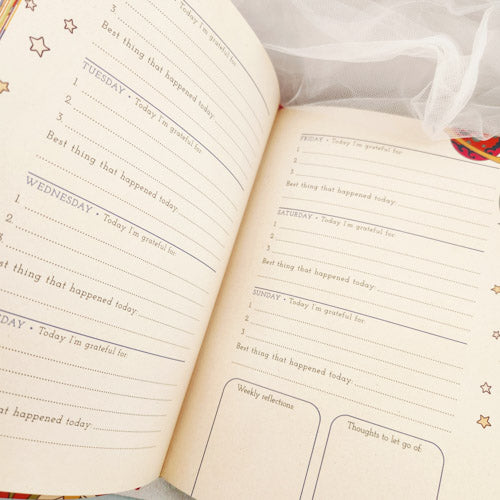 Today I'm grateful for:
1.
2.
3.
Best thing that happened today:
TUESDAY • Today I'm grateful for:
1.
2.
3.
Best thing that happened today:
WEDNESDAY • Today I'm grateful for:
1.
2.
3.
thing that happened today:
DAY • Today I'm grateful for:
that happened today:
FRIDAY • Today I'm grateful for:
1.
2.
3.
Best thing that happened today:
SATURDAY • Today I'm grateful for:
1.
2.
3.
Best thing that happened today:
SUNDAY • Today I'm grateful for:
1.
2.
3.
Best thing that happened today:
Weekly reflections:
Thoughts to let go of: